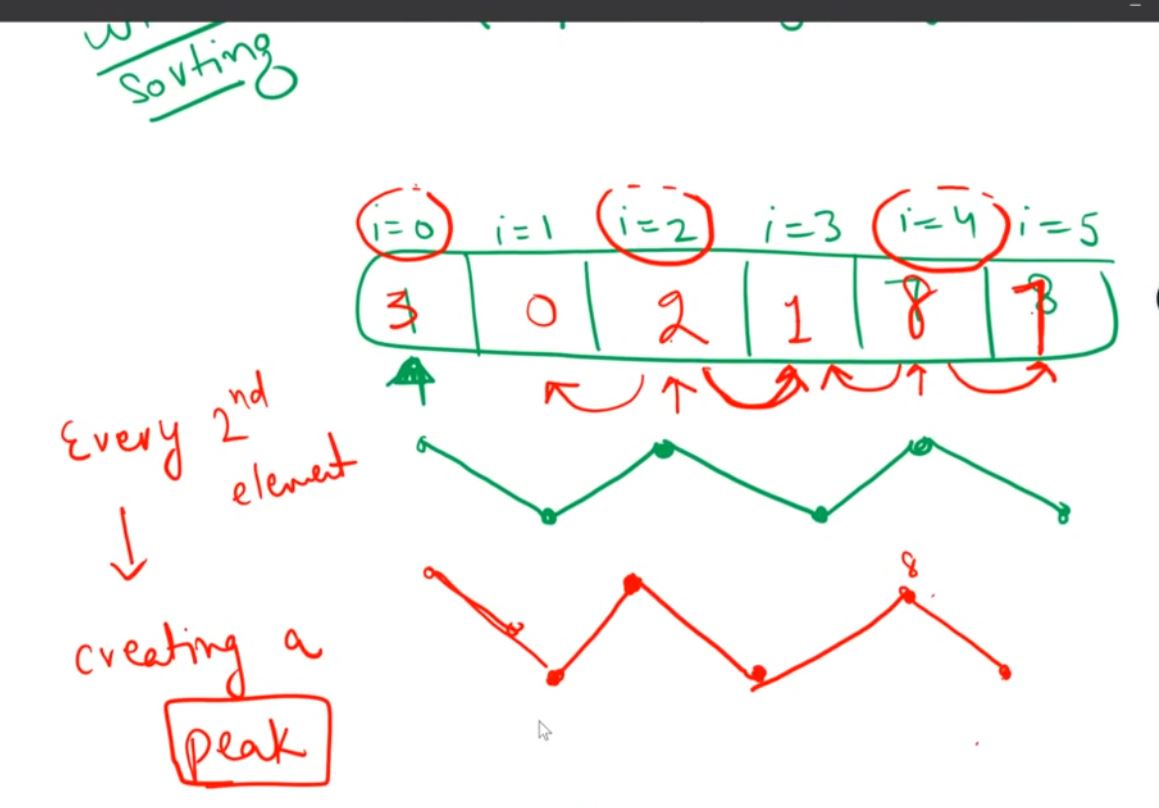 Sorting
i=0 i=1 i=2 i=3 i=4 i=5
3 0 2 1 8 7
Every 2nd
element
8
creating a
peak